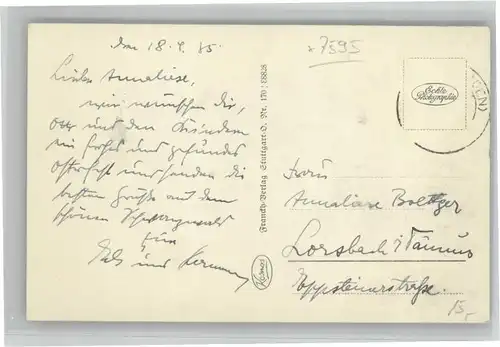 den 18.4.35.
* 7595
Liebe Annaliese,
wir wünschen Dir,
Otto und den Kindern
ein frohes und gesundes
Osterfest und senden die
besten Grüße aus dem
schönen Schwarzwald
Eure
und Hermann
Franckh-Verlag Stuttgart-O. Nr. 170
Kosmos
Echte
Photographie
Frau
Annaliese
Lorsbach i/Taunus
Eppsteinerstraße.
15,-